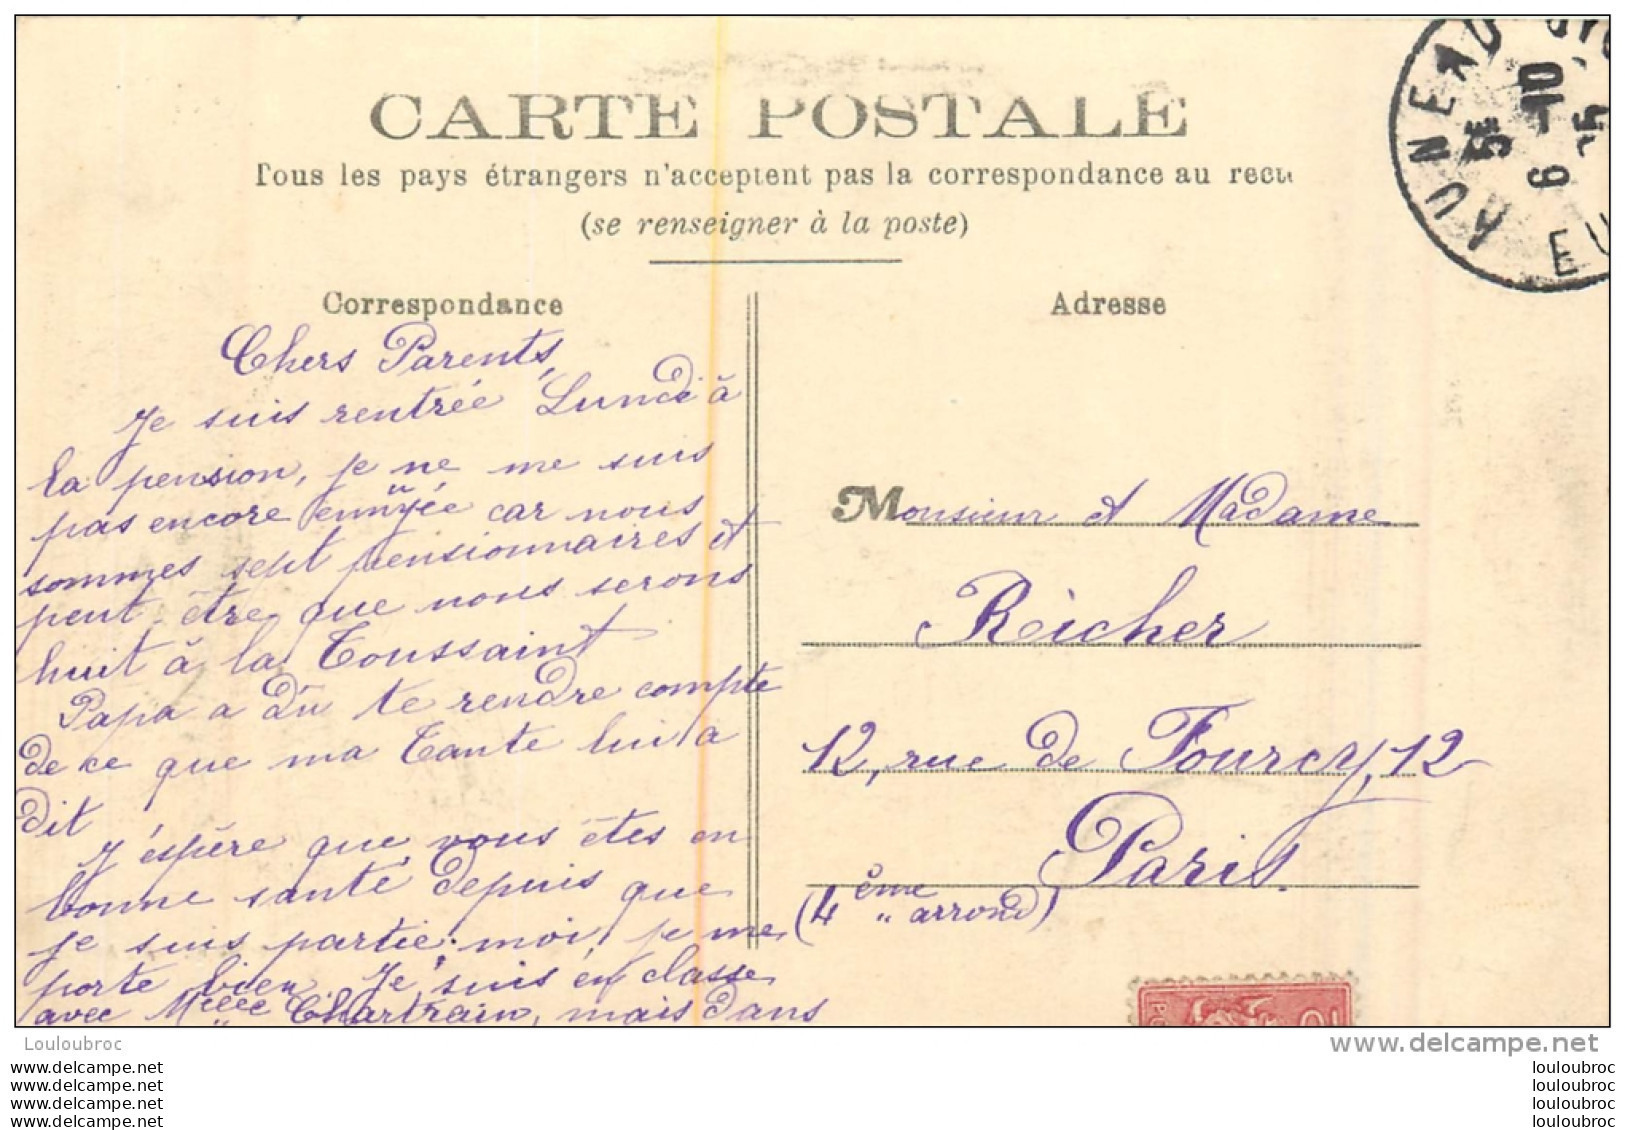 CARTE POSTALE
Tous les pays étrangers n'acceptent pas la correspondance au recu
(se renseigner à la poste)
Correspondance
Chers Parents,
Je suis rentrée Lundi à
la pension, je ne me suis
pas encore ennuyée car nous
sommes sept pensionnaires et
peut-être que nous serons
huit à la Toussaint
Papa a dû te rendre compte
de ce que ma Tante lui a
dit
J'espère que vous êtes en
bonne santé depuis que
je suis partie; moi, je me
porte bien. Je suis en classe
avec Melle Chartrain, mais dans
Adresse
Monsieur et Madame
Reicher
12, rue de Fourcy, 12
Paris.
(4ème arrond)
AUNEAU
5E
6-10
EU
Louloubroc
www.delcampe.net
louloubroc.net
louloubroc.net
louloubroc.net
louloubroc.net
louloubroc
louloubroc
louloubroc
louloubroc